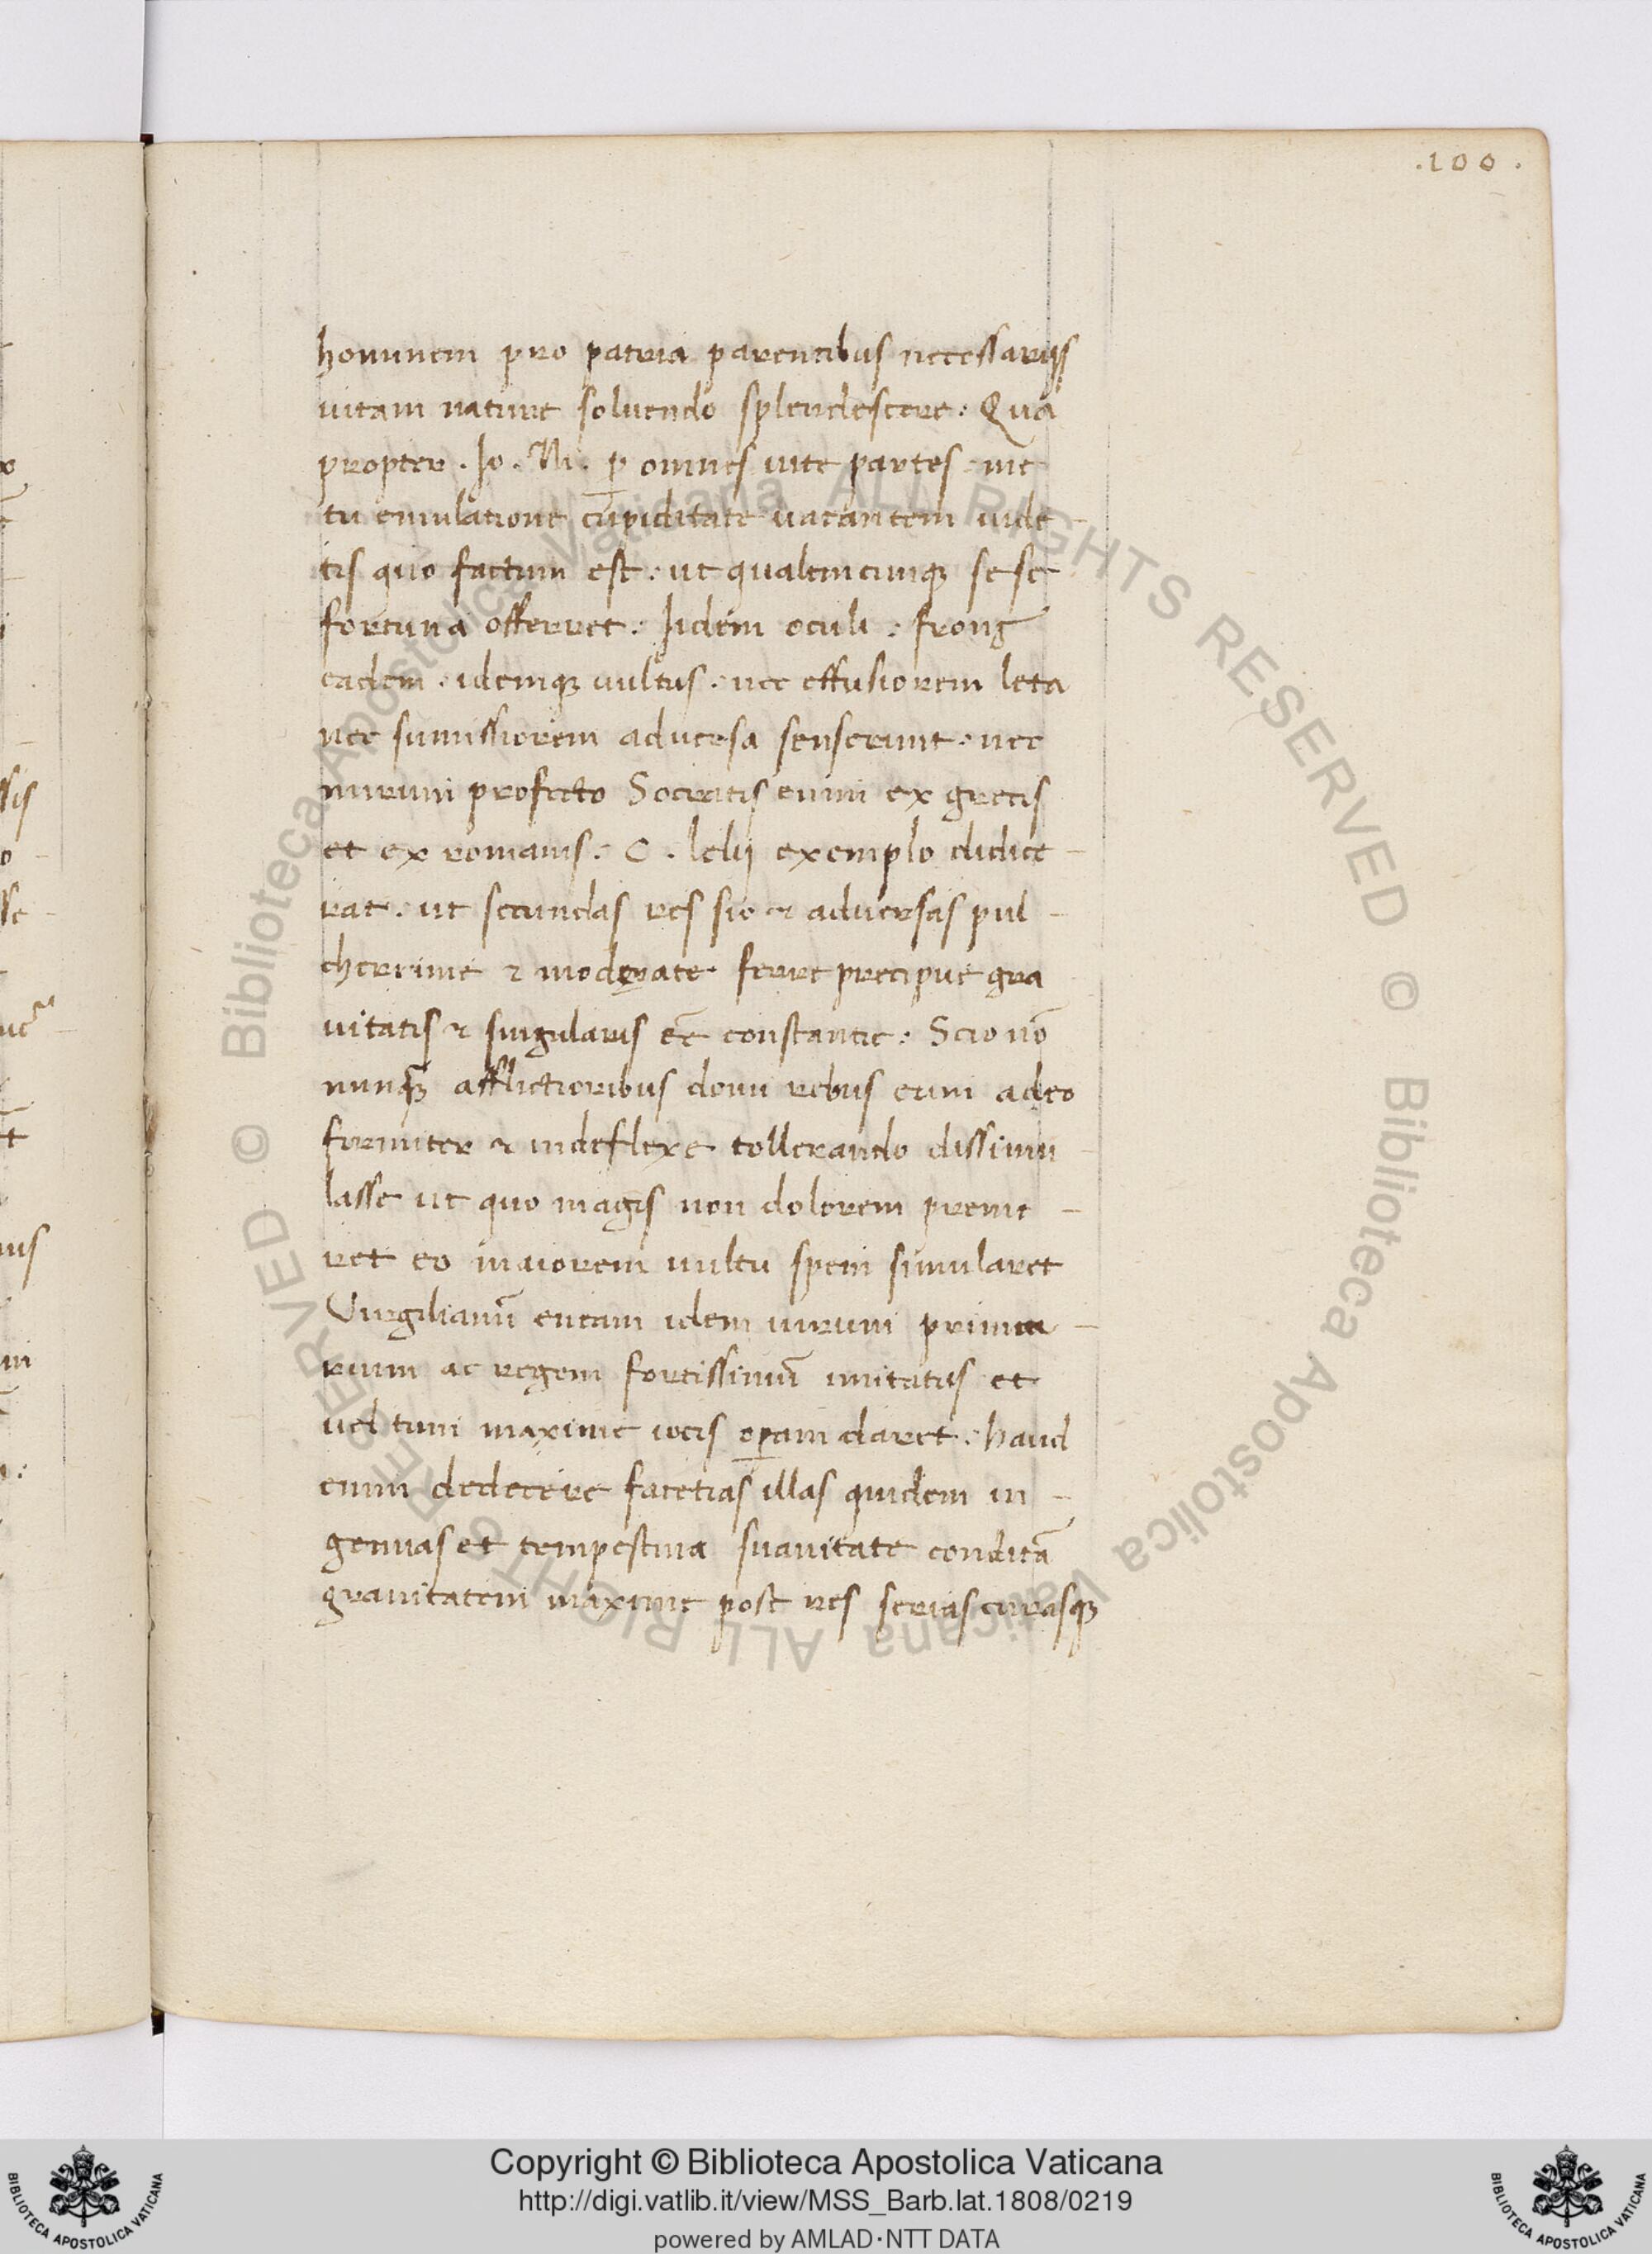 .100.
hominem pro patria parentibus necessariis
uitam nature soluendo splendescere: Qua
propter . Io. Ni. p̲ omnes uite partes me
tu emulatione cupiditate uacantem uide -
tis quo factum est: ut qualemcumq; sese
fortuna offerret: Iidem oculi: frons
eadem: idemq; uultus: nec effusiorem leta
nec sumissiorem aduersa senserunt: nec
mirum profecto Socratis enim ex grecis
et ex romanis: C. lelij exemplo didice -
rat: ut secundas res sic & aduersas pul -
cherrime & moderate ferre precipue gra
uitatis & singularis eē constantie: Scio nō
nunq; afflictioribus domi rebus eum adeo
firmiter & indeflexe tollerando dissimu -
lasse ut quo magis non dolorem preme -
ret eo maiorem uultu spem simularet
Virgilianū eneam idem uirum prima -
rium ac regem fortissimū imitatus et
uel tum maxime iocis op̲am daret: haud
enim dedecere facetias illas quidem in -
genuas et tempestiua suauitate conditā
grauitatem maxime post res serias curasq;
Biblioteca Apostolica Vaticana ALL RIGHTS RESERVED ©
Biblioteca Apostolica Vaticana ALL RIGHTS RESERVED ©
Copyright © Biblioteca Apostolica Vaticana
http://digi.vatlib.it/view/MSS_Barb.lat.1808/0219
powered by AMLAD·NTT DATA
BIBLIOTECA APOSTOLICA VATICANA
BIBLIOTECA APOSTOLICA VATICANA